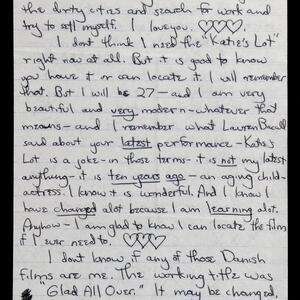 the dirty cities and search for work and
try to sell myself. I love you. ♡♡♡.
I dont think I need the "Katie's Lot"
right now at all. But it is good to know
you have it or can locate it. I will remember
that. But I will be 27 – and I am very
beautiful and very modern – whatever that
means – and I remember what Lauren Bacall
said about your latest performance – Katie's
Lot is a joke – in those terms – it is not my latest
anything – it is ten years ago – an aging child-
actress. I know it is wonderful. And I know I
have changed alot because I am learning alot.
Anyhow – I am glad to know I can locate the film
if I ever need to. ♡♡♡
I dont know if any of those Danish
films are me. The working title was
"Glad All Over." It may be changed.